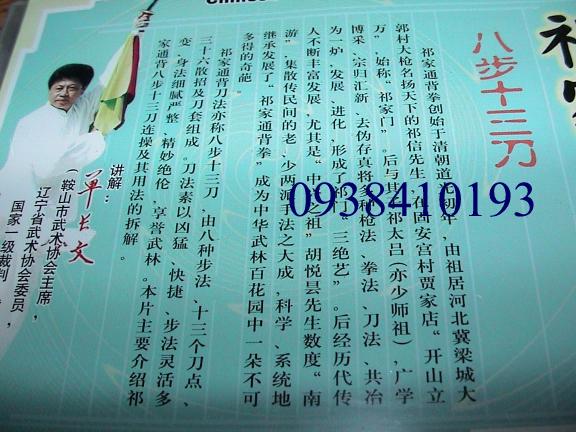 Chinese
祁家
八步十三刀
祁家通背拳创始于清朝道光初年，由祖居河北冀梁城大
郭村大枪名扬天下的祁信先生，在固安宫村贾家店“开山立
万”，始称“祁家门”。后与其子祁太吕（亦少师祖），广学
博采、宗归汇新、去伪存真将各种枪法、拳法、刀法、共冶
为一炉，发展、进化，形成了祁门“三绝艺”。后经历代传
人不断丰富发展，尤其是“中兴之祖”胡悦昙先生数度“南
游”，集散传民间的老、少两派手法之大成，科学、系统地
继承发展了“祁家通背拳”成为中华武林百花园中一朵不可
多得的奇葩。
祁家通背刀法亦称八步十三刀，由八种步法、十三个刀点、
三十六散招及刀套组成。刀法素以凶猛、快捷、步法灵活多
变、身法细腻严整、精妙绝伦，享誉武林。本片主要介绍祁
家通背八步十三刀连操及其用法的拆解。
讲解：单长文
（鞍山市武术协会主席，
辽宁省武术协会委员，
国家一级裁判
0938410193